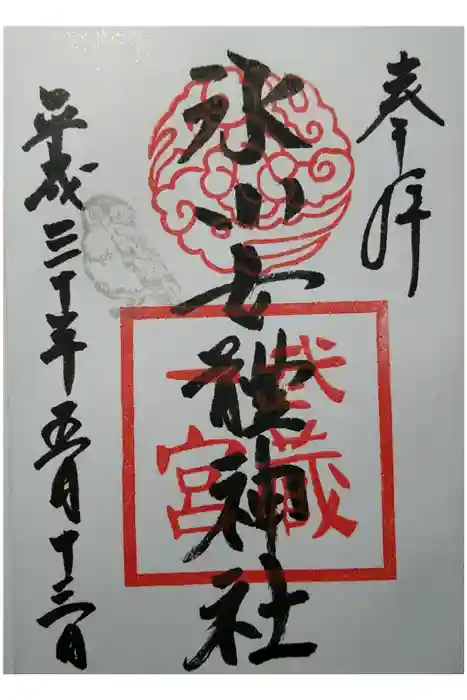 奉拝
氷川女體神社
武蔵
一宮
平成三十年五月十三日